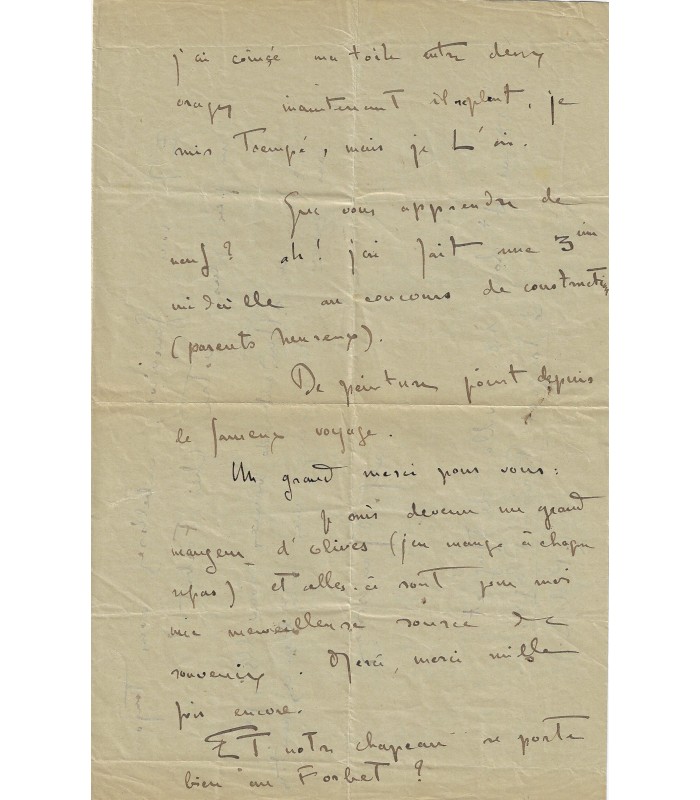 j'ai coincé ma toile entre deux
orages maintenant il repleut, je
suis Trempé, mais je L'ai.
Que vous apprendre de
neuf? ah! j'ai fait une 3ième
médaille au concours de construction
(parents heureux).
De peinture point depuis
le fameux voyage.
Un grand merci pour vous:
je suis devenu un grand
mangeur d'olives (j'en mange à chaque
repas) et celles-ci sont pour moi
une merveilleuse source de
souvenirs. Merci, merci mille
fois encore.
Et notre chapeau se porte
bien au